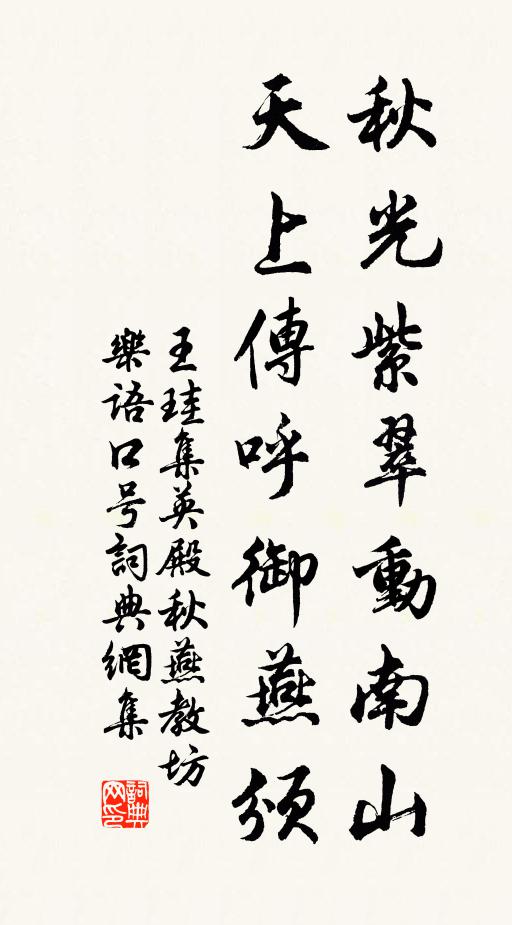 秋光紫翠動南山
天上傳呼御燕頒
王珪集英殿秋燕教坊
樂語口号詞典網集
詞典网印